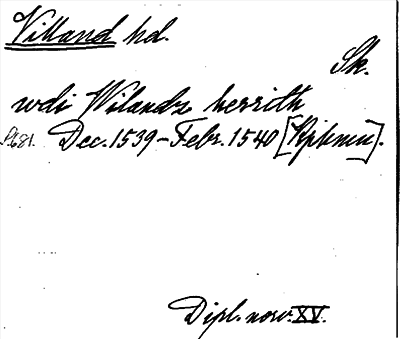 Villand hd.
Sk.
udi Wilandz herrith
P. 681. Dec. 1539 - Febr. 1540 [Kphmn].
Dipl. norv. XV.